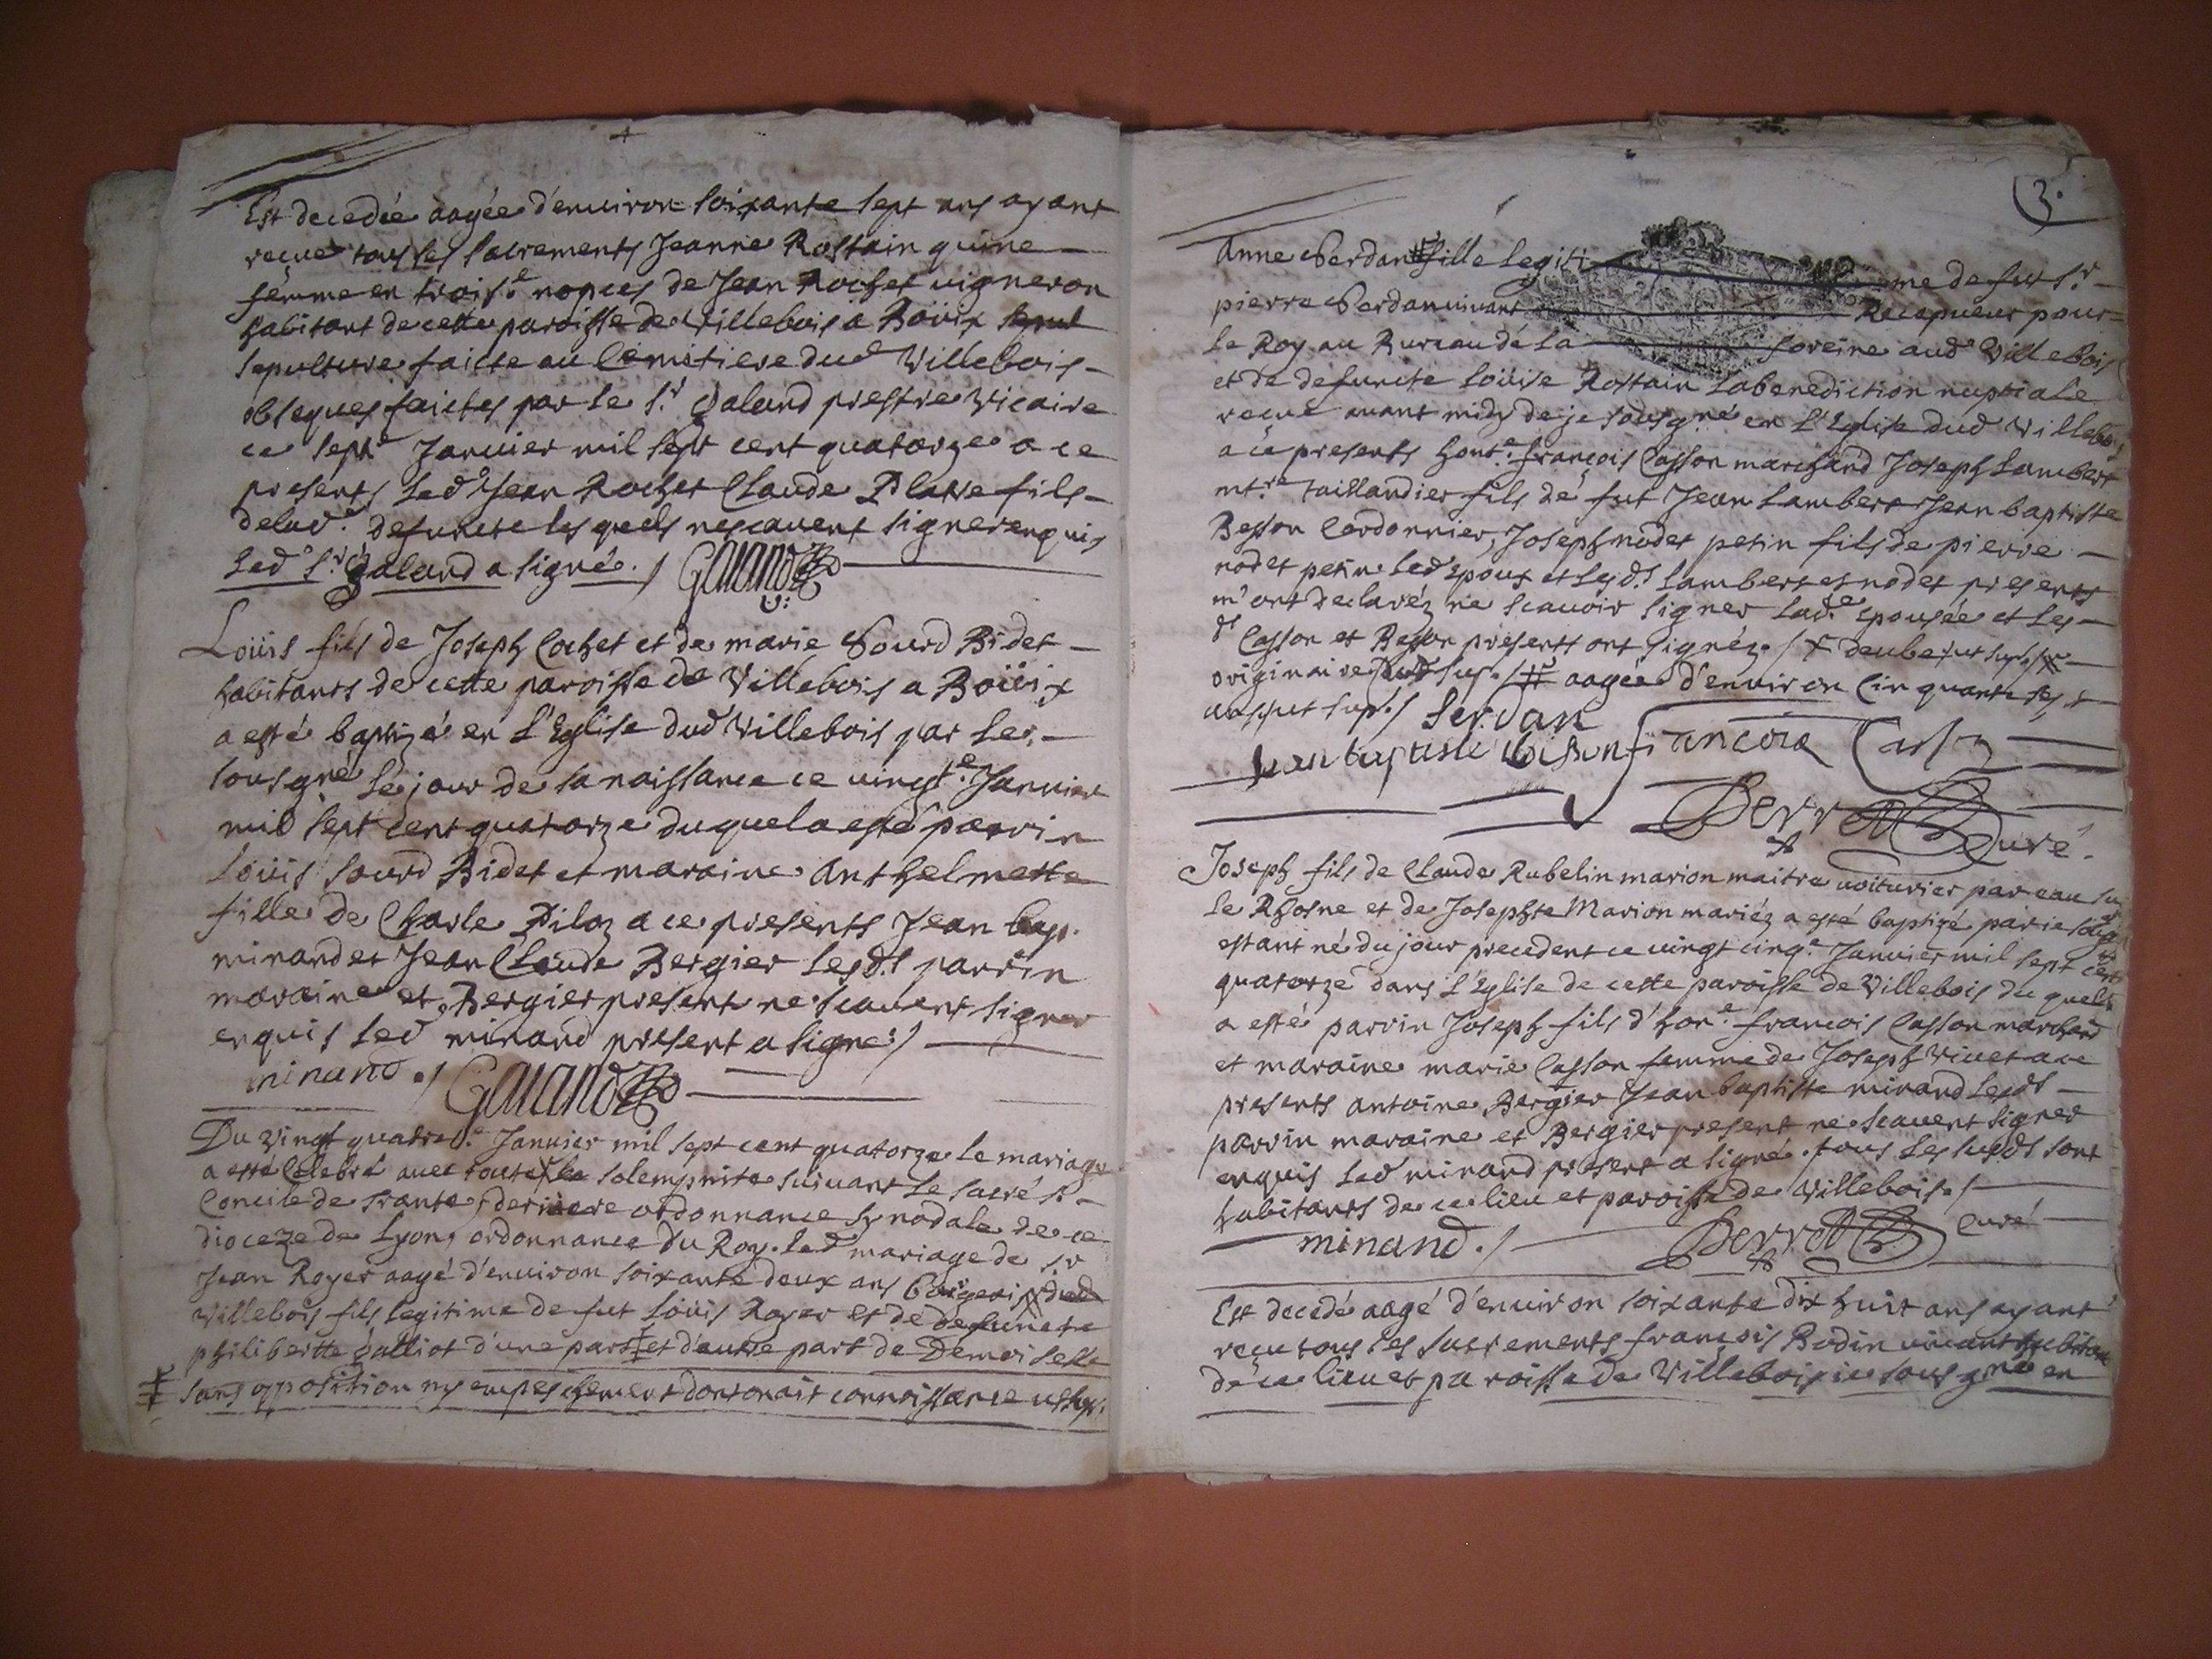 Est decedée aagée d'environ soixante sept ans ayant
reçue tous les sacrements Jeanne Rostain quine
femme en trois.e nopces de Jean Rochet vigneron
habitant de cette paroisse de Villebois a Boüix
sepulture faicte au Cemitiere dud Villebois
obseques faictes par le s.r Galand prestre vicaire
ce sept.e Janvier mil sept cent quatorze a ce
presents led Jean Rochet Claude fils
delad.e defuncte lesquels nescavent signer enquis
Led s.r Galand a signé./ Galand
Loüis fils de Joseph Cochet et de marie Sourd Bidet
habitants de cette paroisse de Villebois a Boüix
a esté baptizé en l'Eglise dud Villebois par le
sousgné le jour de sa naissance ce vingt.e Janvier
mil sept cent quatorze duquel a esté parrin
Loüis Sourd Bidet et maraine Anthelmette
fille de Charle Piloz a ce presents Jean bap.
minand et Jean Claude Bergier lesd.s parrin
maraine et Bergier present ne scavent signer
enquis led minand present a signé./
minand./ Galand
Du vingt quatre.e Janvier mil sept cent quatorze le mariage
a esté Celebré avec toute la solempnite suivant le sacré s.
Concile de Trante, derniere ordonnance synodale de ce
dioceze de Lyon, ordonnance du Roy. led mariage de s.r
Jean Royer aagé d'environ soixante deux ans bourgeois dud
Villebois fils legitime de fut Loüis Royer et de defuncte
philibertte Galliot d'une part ‡ et d'autre part de Demoiselle
‡ sans opposition ny empeschement dont on ait connoissance
3.
Anne Serdan # fille legiti me de fut s.r
pierre Serdan vivant Recepveur pour
le Roy au Bureau de la foreine aud Villebois
et de defuncte Loüise Rostain la benediction nuptiale
reçue avant midy de je sousgné en l'Eglise dud Villebois
a ce presents hont.e françois Casson marchand Joseph Lambert
mt.re taillandier fils de fut Jean Lambert Jean baptiste
Besson Cordonnier, Joseph nodet petin fils de pierre
nodet petin. Led Epoux et lesd.s Lambert et nodet presents
m'ont declaréz ne scavoir signer lad.e epousée et les
d.s Casson et Besson presents ont signéz./
originaire # aagée d'environ Cinquante
Serdan
Jean baptiste Besson francois Casson
Perret Curé.
Joseph fils de Claude Rubelin marion maitre voiturier par eau su
le Rhosne et de Josephte Marion mariéz a esté baptizé par je sousg
estant né du jour precedent ce vingt cinq.e Janvier mil sept cent
quatorze dans l'Eglise de cette paroisse de Villebois du quel
a esté parrin Joseph fils d'hon.e francois Casson marchand
et maraine marie Casson femme de Joseph Vivet a ce
presents antoine Bergier Jean baptiste minand lesd.s
parrin maraine et Bergier present ne scavent signer
enquis led minand present a signé. tous les susd.s sont
habitants de ce lieu et paroisse de Villebois./
minand./ Perret Curé
Est decedé aagé d'environ soixante dix huit ans ayant
reçu tous les sacrements francois Bodin vivant habitant
de ce lieu et paroisse de Villebois je sousgné en